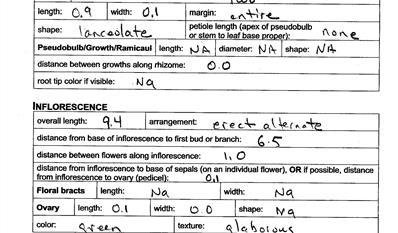 length: 0.9 width: 0.1 margin: entire
shape: lanceolate petiole length (apex of pseudobulb or stem to leaf base proper): none
Pseudobulb/Growth/Ramicaul length: NA diameter: NA shape: NA
distance between growths along rhizome: 0.0
root tip color if visible: Na
INFLORESCENCE
overall length: 9.4 arrangement: erect alternate
distance from base of inflorescence to first bud or branch: 6.5
distance between flowers along inflorescence: 1.0
distance from inflorescence to base of sepals (on an individual flower), OR if possible, distance
from inflorescence to ovary (pedicel): 0.1
Floral bracts length: Na width: Na
Ovary length: 0.1 width: 0.0 shape: Na
color: green texture: glabrous